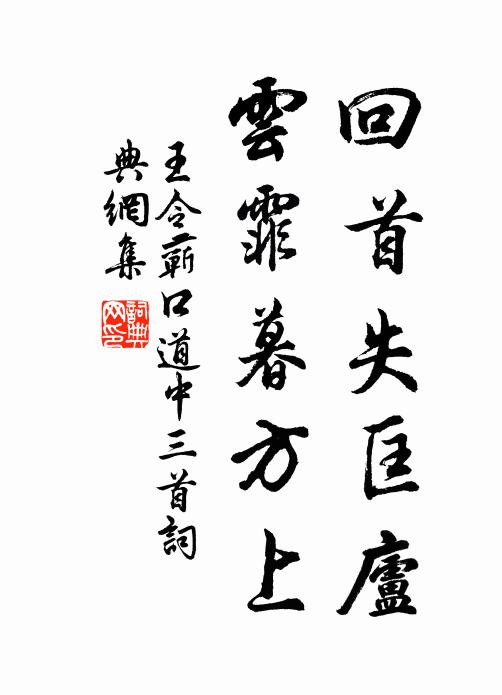 回首失匡廬
雲霏暮方上
王令蘄口道中三首詞
典網集
詞典网印